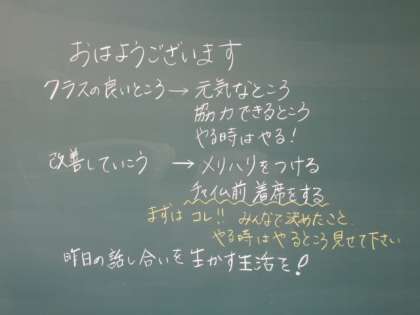 おはようございます
クラスの良いところ→元気なところ
協力できるところ
やる時はやる!
改善していこう→メリハリをつける
チャイム前着席をする
まずはコレ!!みんなで決めたこと
やる時はやるところ見せて下さい
昨日の話し合いを生かす生活を!